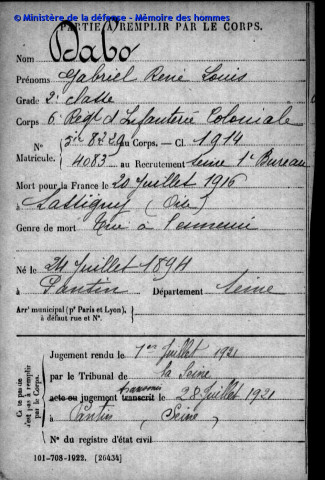 © Ministère de la défense - Mémoire des hommes
PARTIE A REMPLIR PAR LE CORPS.
Nom Dabo
Prénoms Gabriel René Louis
Grade 2e classe
Corps 6e Regt d'Infanterie Coloniale
N° 8229 au Corps. — Cl. 1914
Matricule. 4083 au Recrutement Seine 1er Bureau
Mort pour la France le 20 Juillet 1916
à Lassigny (Oise)
Genre de mort Tué à l'ennemi
Né le 24 Juillet 1894
à Pantin Département Seine
Arrt municipal (pr Paris et Lyon),
à défaut rue et N°.
Cette partie
n'est pas à remplir
par le Corps.
Jugement rendu le 1er Juillet 1921
par le Tribunal de la Seine
acte ou jugement transcrit le 28 Juillet 1921
à Pantin (Seine)
N° du registre d'état civil
101-708-1922. [26434]